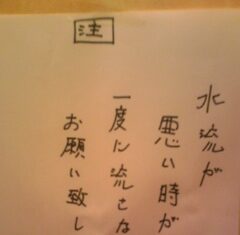 注
水流が
悪い時が
一度に流さな
お願い致し